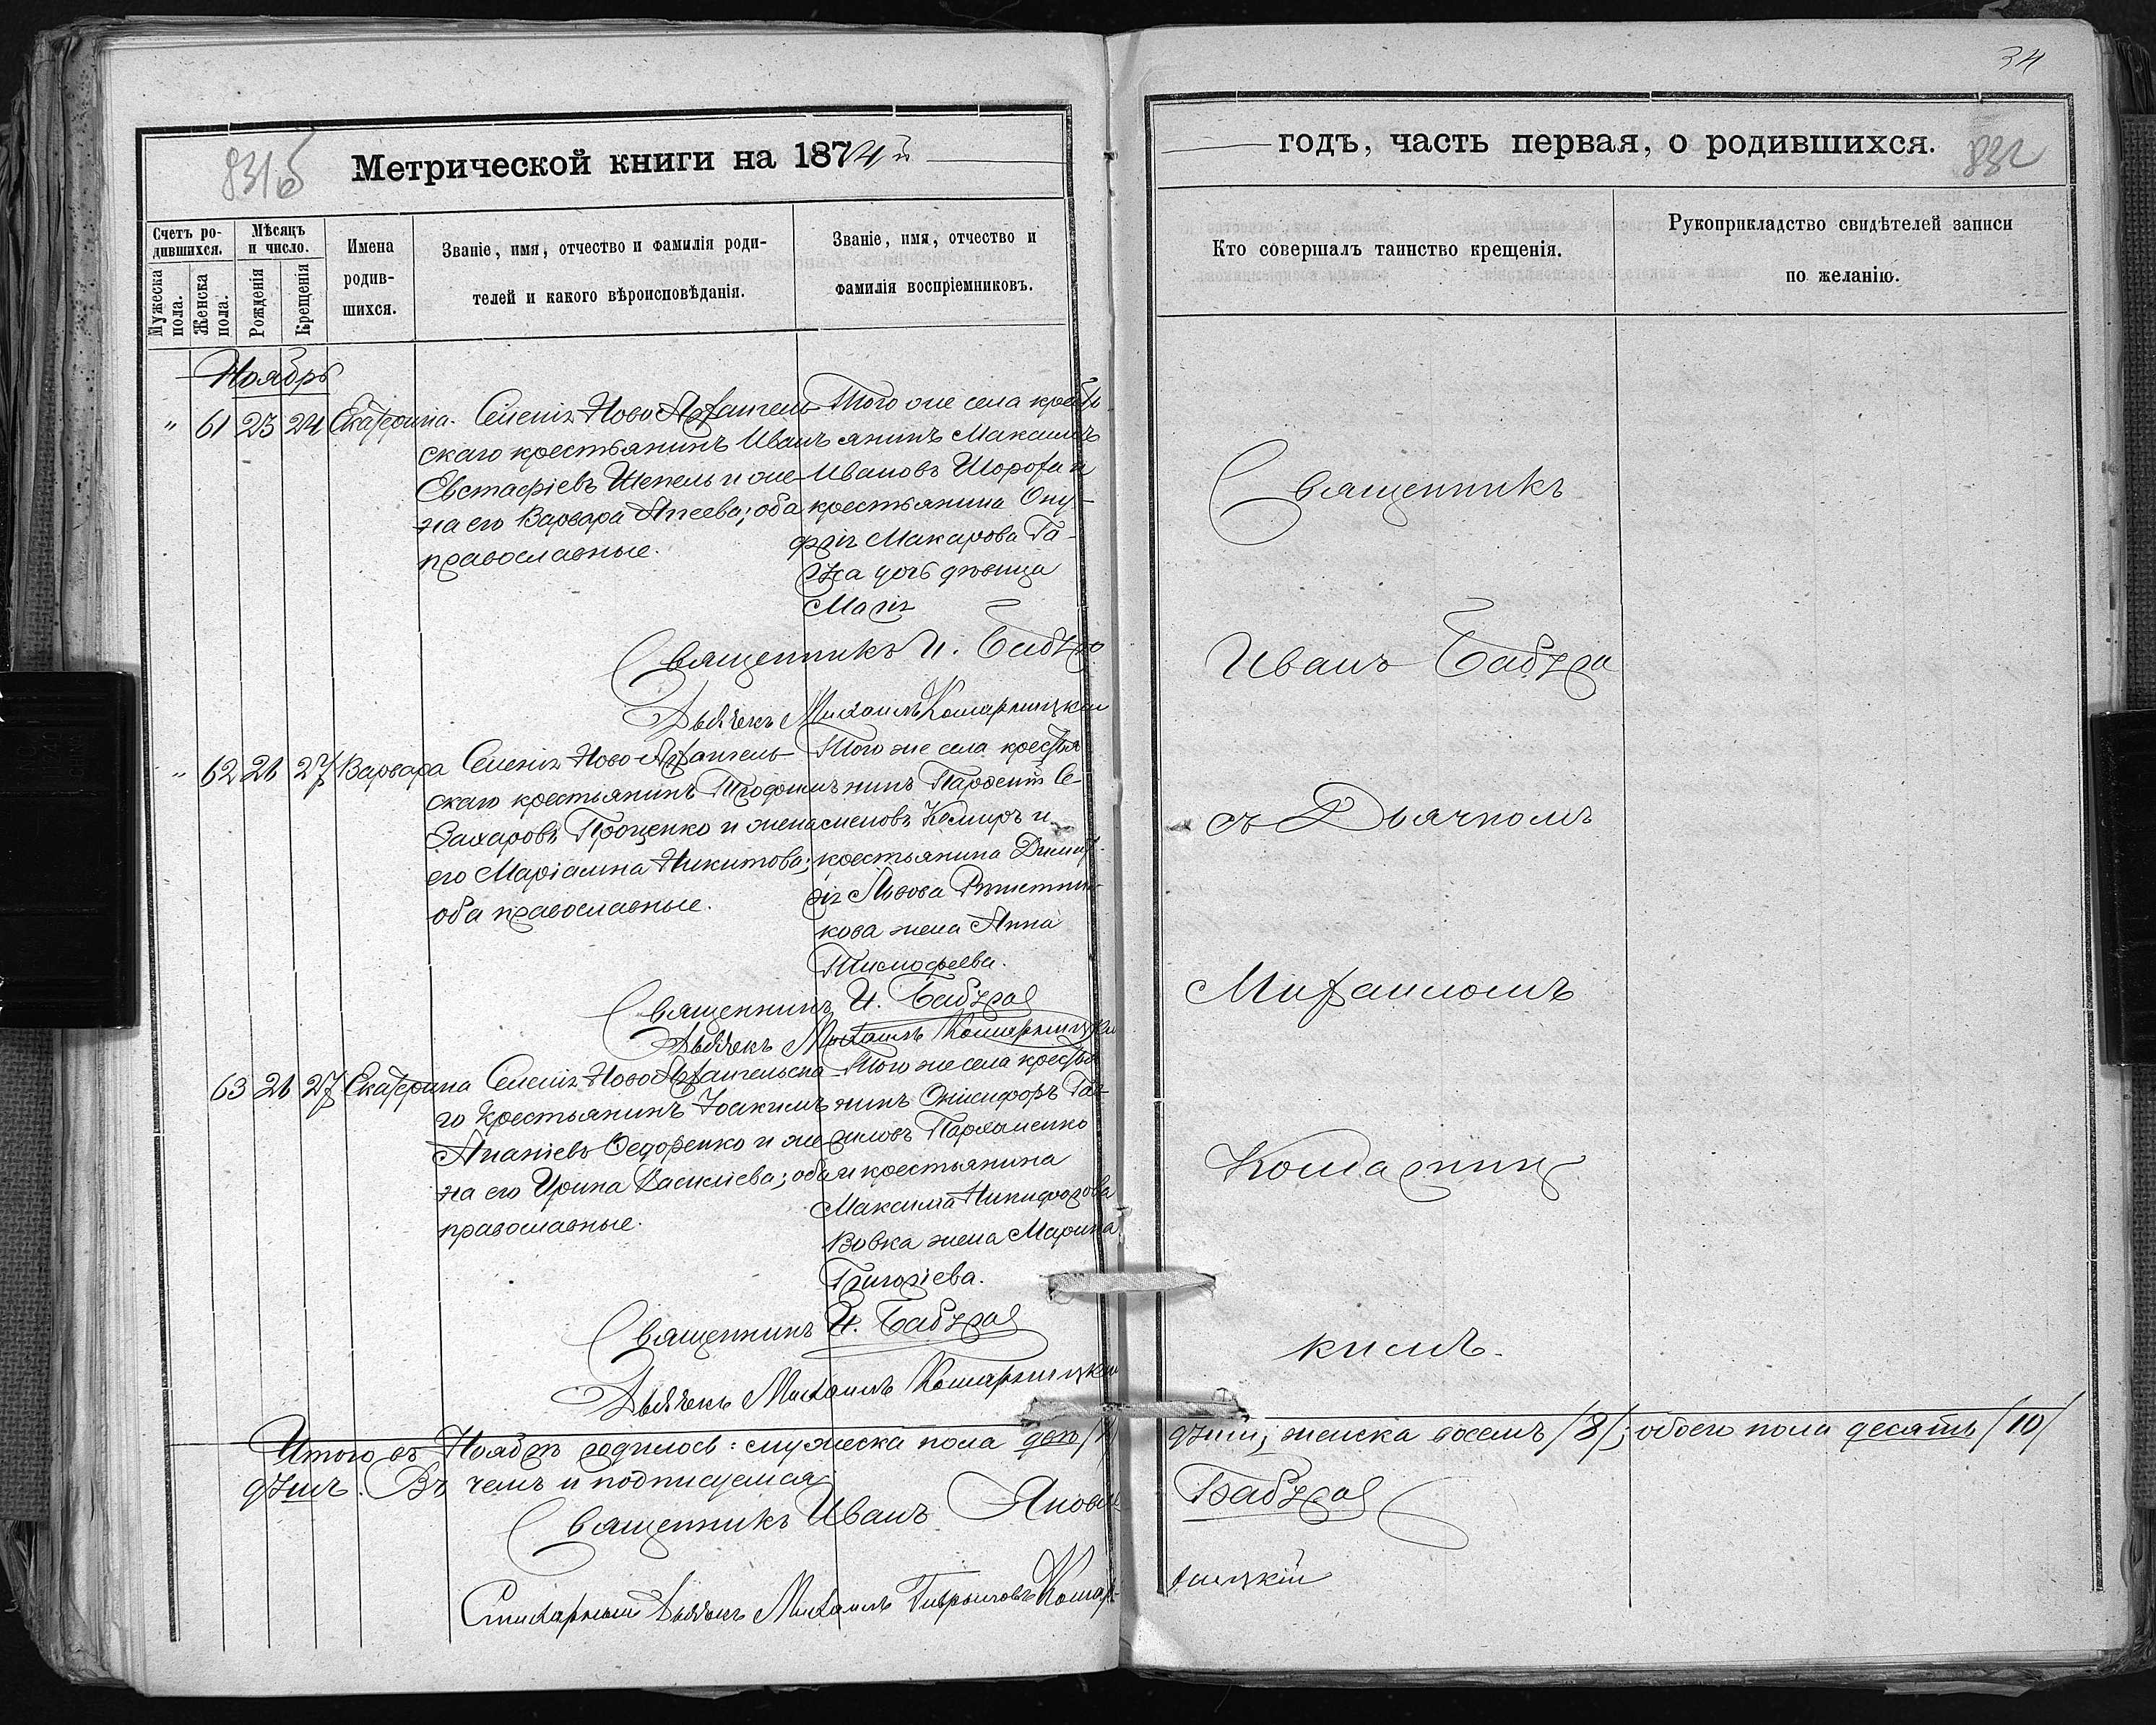 34
831б
Метрической книги на 1874й
годъ, часть первая, о родившихся.
832
Счетъ родившихся.
Мужеска пола.
Женска пола.
Мѣсяцъ и число.
Рожденія
Крещенія
Имена родившихся.
Званіе, имя, отчество и фамилія родителей и какого вѣроисповѣданія.
Званіе, имя, отчество и фамилія воспріемниковъ.
Кто совершалъ таинство крещенія.
Рукоприкладство свидѣтелей записи по желанію.
Ноябрь
" 61 23 24 Екатерина.
Селенія Ново Архангель-
скаго крестьянинъ Иванъ
Евстафіевъ Шепель и же-
на его Варвара Агеева; оба
православные.
Того же села кресть
янинъ Максимъ
Ивановъ и
крестьянина Ону-
фрія Макарова Га-
дочь дѣвица
Марія
Священникъ И. Бабура
Дьячекъ Михаилъ Комарницкій
" 62 26 27 Варвара
Селенія Ново-Архангель-
скаго крестьянинъ Трофимъ
Захаровъ Проценко и жена
его Маріамна Никитова;
оба православные.
Того же села крестья
нинъ Парфеній Се-
меновъ и
крестьянина Димит-
рія Львова
кова жена Анна
Тимофеева.
Священникъ И. Бабура
Дьячекъ Михаилъ Комарницкій
63 26 27 Екатерина
Селенія Ново Архангельска-
го крестьянинъ Іоакимъ
Ананіевъ Федоренко и же
на его Ирина Василіева; оба
православные.
Того же села крестья
нинъ Онисифоръ Гав-
риловъ Пархоменко
и крестьянина
Максима Никифорова
Вовка жена Марина
Григоріева.
Священникъ И. Бабура
Дьячекъ Михаилъ Комарницкій
Священникъ
Иванъ Бабура
съ Дьячкомъ
Михаиломъ
Комарниц
кимъ.
Итого въ Ноябрѣ родилось: мужеска пола двѣ /2/ души; женска восемь /8/; обоего пола десять /10/
душъ. Въ чемъ и подписуемся
Священникъ Иванъ Бабура
Стихарный Дьячекъ Михаилъ Гавриловъ Комар-ницкій